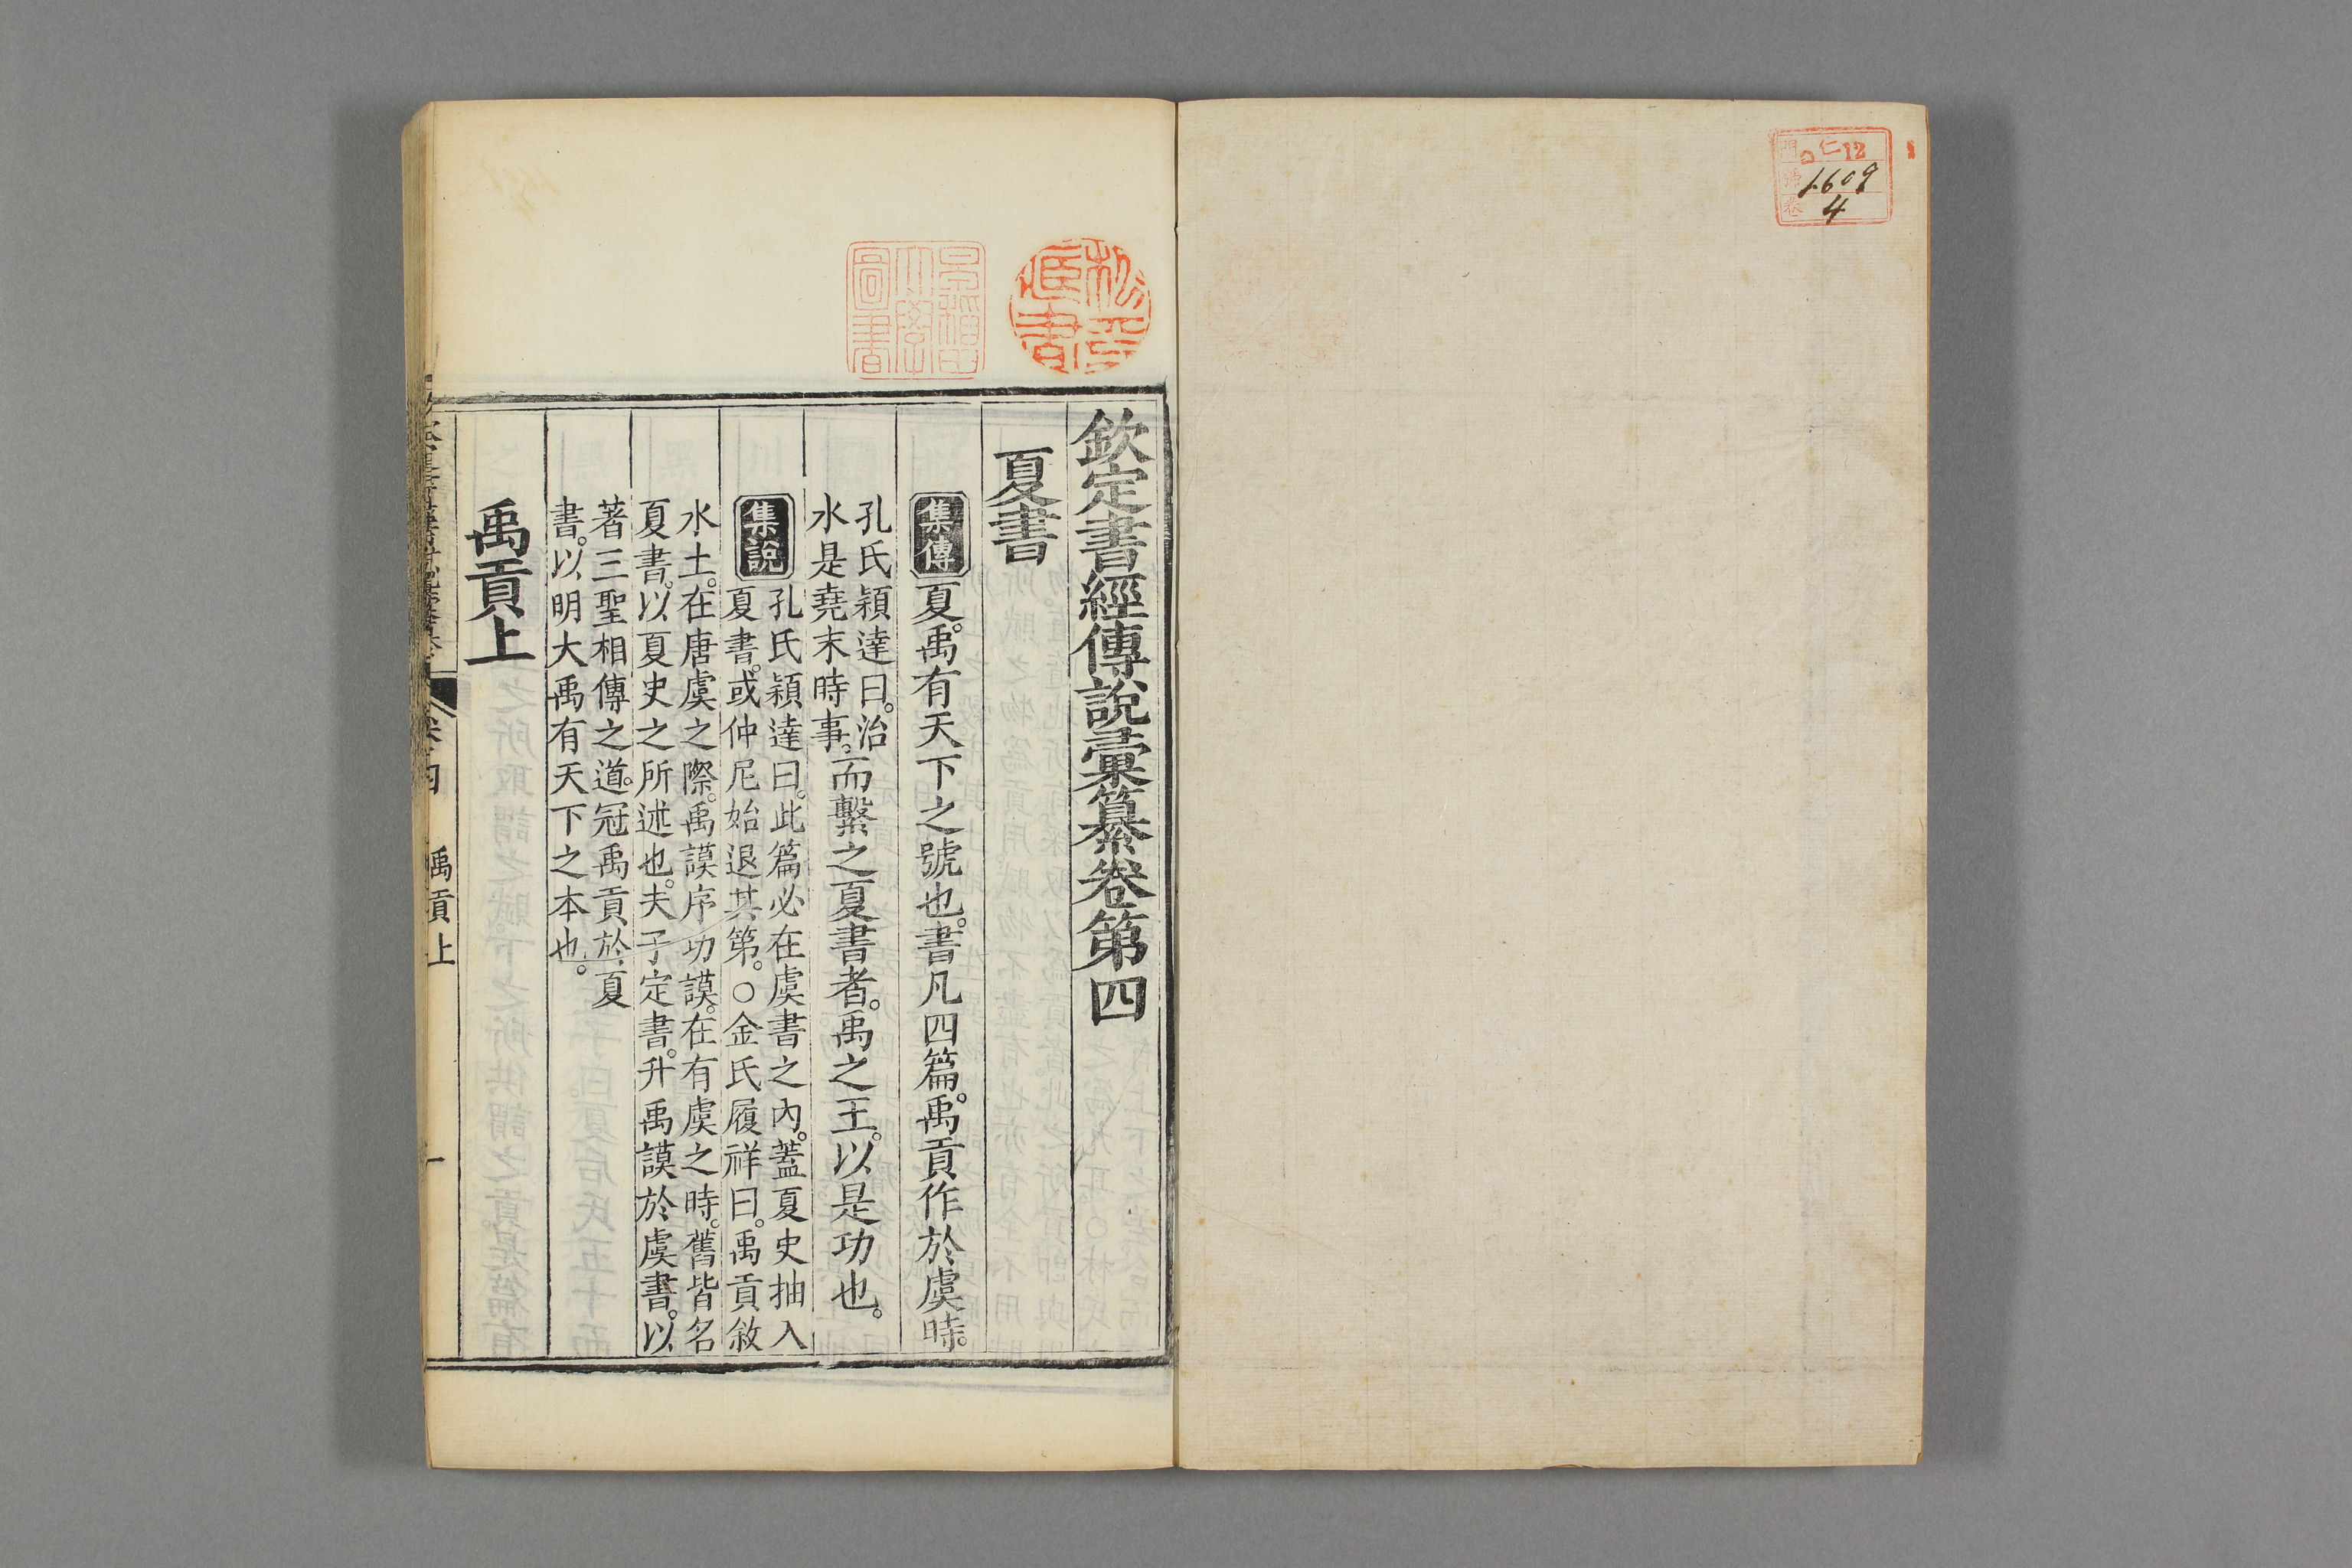 門 ロ仁12
號 1609
卷 4
早稻田
大學
圖書
欽定書經傳說彙纂卷第四
夏書
集傳 夏。禹有天下之號也。書凡四篇。禹貢作於虞時。
孔氏穎達曰。治
水是堯末時事。
而繫之夏書者。禹之王。以是功也。
集說
孔氏穎達曰。此篇必在虞書之內。蓋夏史抽入
夏書。或仲尼始退其第。○金氏履祥曰。禹貢敘
水土。在唐虞之際。禹謨序功謨。在有虞之時。舊皆名
夏書。以夏史之所述也。夫子定書。升禹謨於虞書。以
著三聖相傳之道。冠禹貢於夏
書。以明大禹有天下之本也。
禹貢上
禹貢上
一